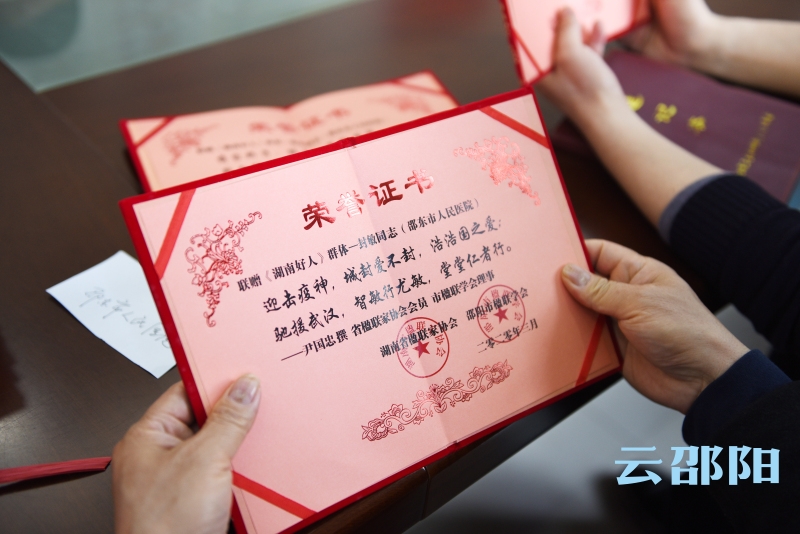 荣誉证书
联赠《湖南好人》群体—封敏同志（邵东市人民医院）
迎击疫神，城封爱不封，浩浩国之爱；
驰援武汉，智敏行尤敏，堂堂仁者行。
——尹国忠撰 省楹联家协会会员 市楹联学会理事
湖南省楹联家协会 邵阳市楹联学会
二〇二〇年三月
荣誉证书
云邵阳